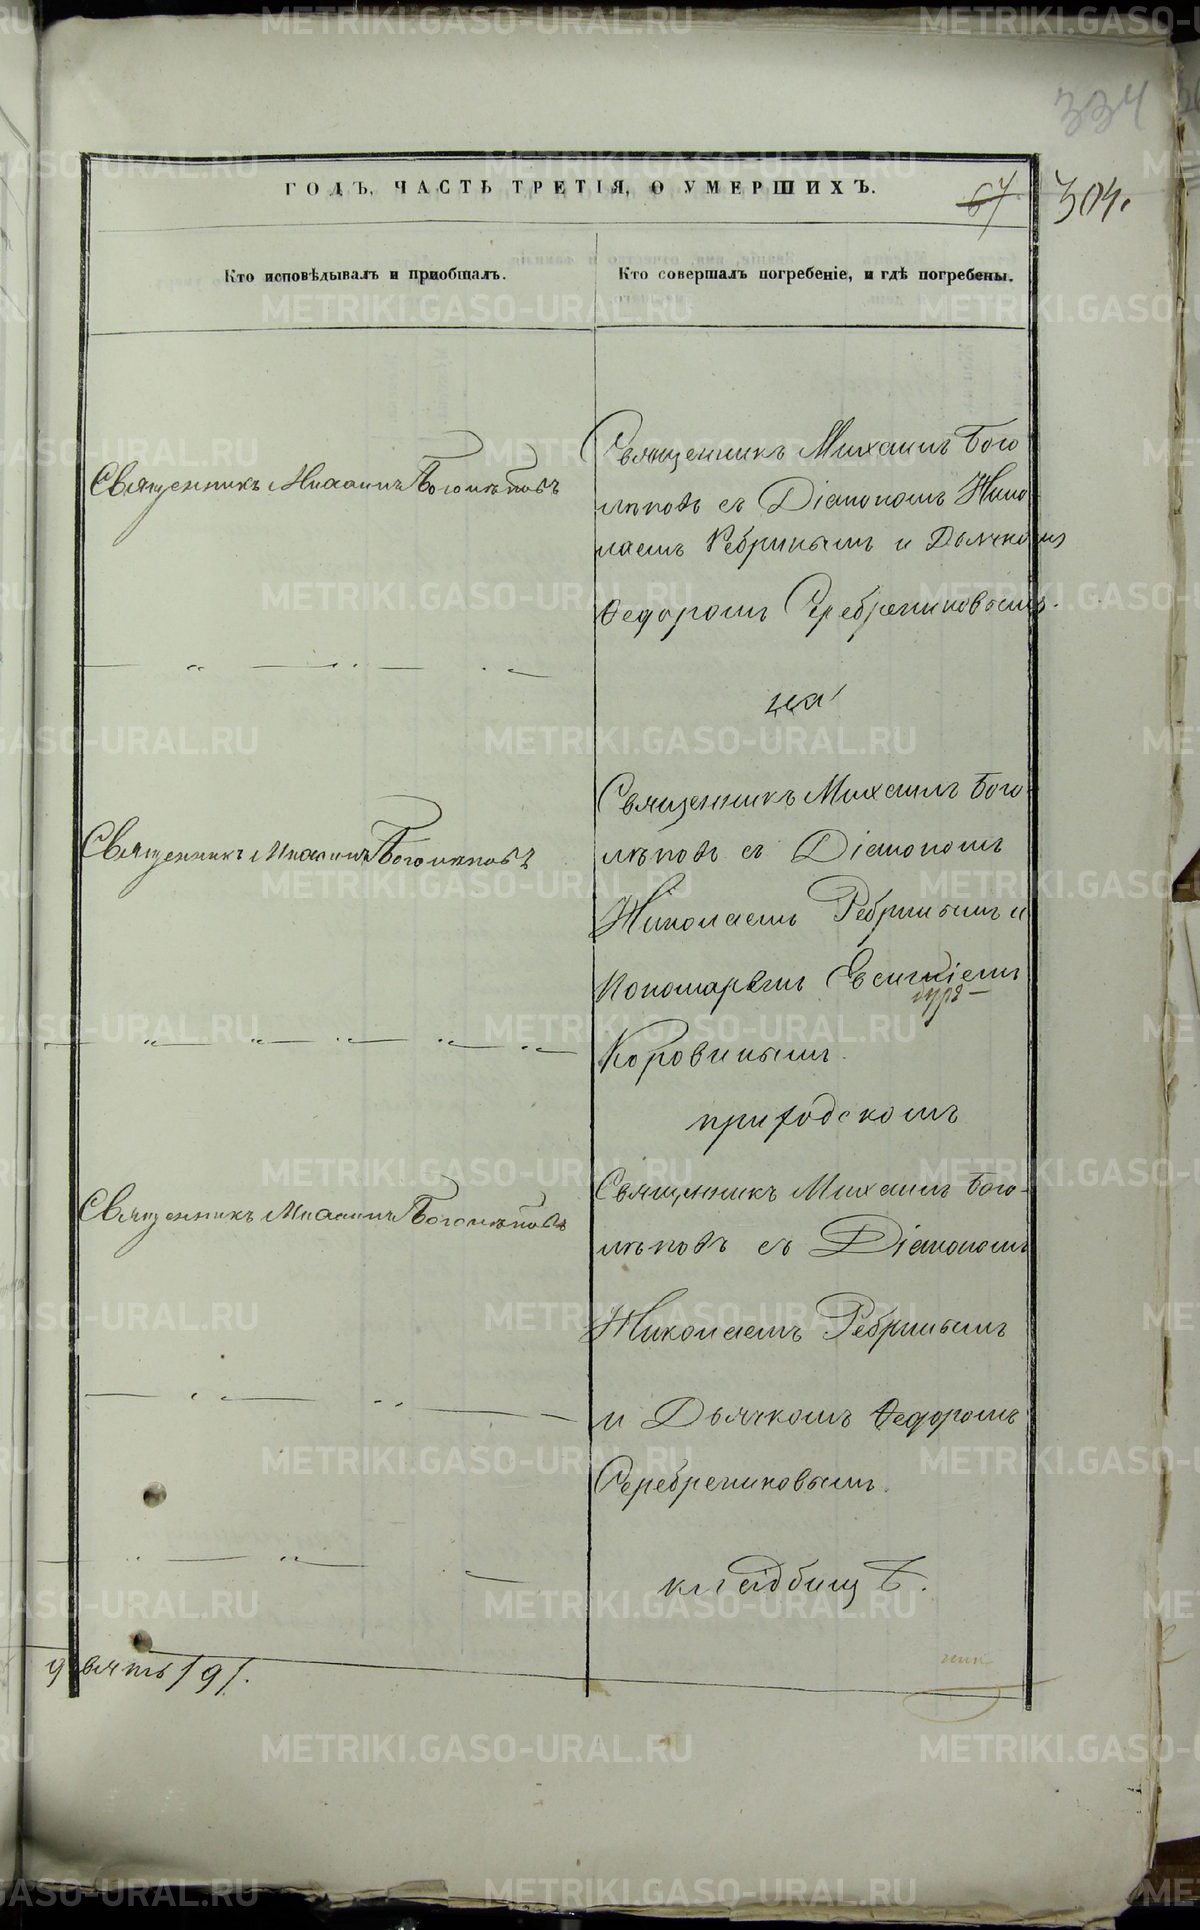 334
ГОДЪ, ЧАСТЬ ТРЕТІЯ, О УМЕРШИХЪ.
67
304.
Кто исповѣдывалъ и пріобщалъ.
Кто совершалъ погребеніе, и гдѣ погребены.
Священникъ Михаилъ Боголѣповъ
Священникъ Михаилъ Бого
лѣповъ съ Діакономъ Нико
лаемъ Ребринымъ и Дьячкомъ
Ѳедоромъ Серебрениковымъ.
на
Священникъ Михаилъ Боголѣповъ
Священникъ Михаилъ Бого
лѣповъ съ Діакономъ
Николаемъ Ребринымъ и
Пономаремъ
Коровинымъ.
приходскомъ
Священникъ Михаилъ Боголѣповъ
Священникъ Михаилъ Бого-
лѣповъ съ Діакономъ
Николаемъ Ребринымъ
и Дьячкомъ Ѳедоромъ
Серебрениковымъ.
кладбищѣ.
девять /9/.
METRIKI.GASO-URAL.RU